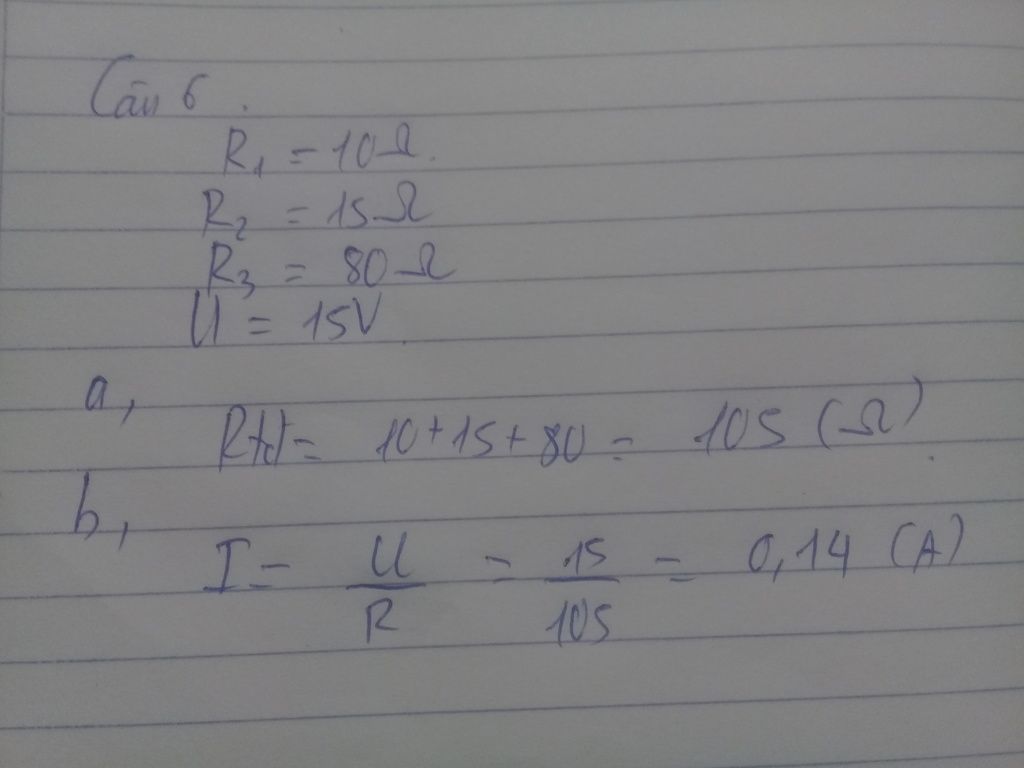 Câu 6.
R₁ = 10Ω.
R₂ = 15Ω
R₃ = 80Ω
U = 15V
a,
Rtđ = 10+15+80 = 105 (Ω).
b,
I = U/R = 15/105 = 0,14 (A)